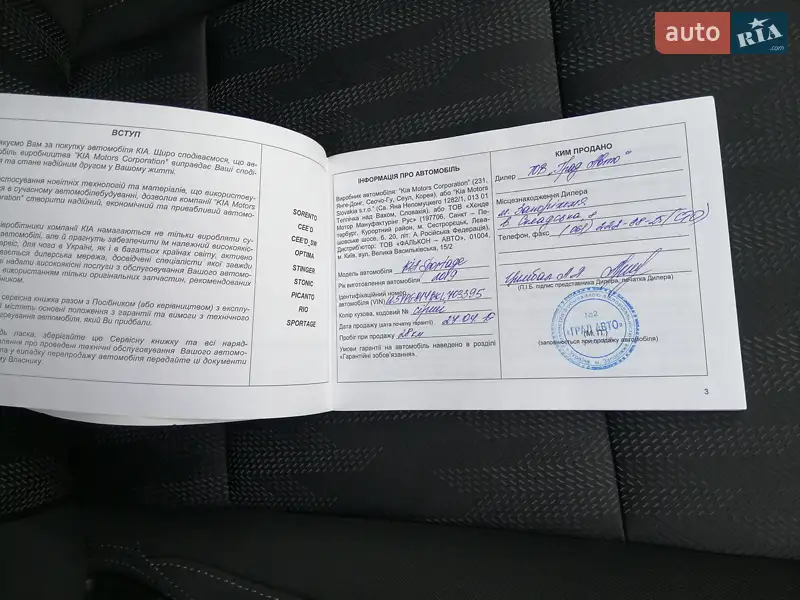 auto RIA .com
ВСТУП
якуємо Вам за покупку автомобіля KIA. Щиро сподіваємося, що ав-
мобіль виробництва "KIA Motors Corporation" виправдає Ваші споді-
та стане надійним другом у Вашому житті.
стосування новітніх технологій та матеріалів, що використову-
в сучасному автомобілебудуванні, дозволив компанії "KIA Motors
oration" створити надійний, економічний та привабливий автомо-
робітники компанії KIA намагаються не тільки виробляти су-
автомобілі, але й прагнуть забезпечити їм належний високоякіс-
сервіс, для чого в Україні, як і в багатьох країнах світу, активно
ється дилерська мережа, досвідчені спеціалісти якої завжди
надати високоякісні послуги з обслуговування Вашого автомо-
використанням тільки оригінальних запчастин, рекомендованих
ником.
сервісна книжка разом з Посібником (або керівництвом) з експлу-
містять основні положення з гарантії та вимоги з технічного
ування автомобіля, який Ви придбали.
дь ласка, зберігайте цю Сервісну книжку та всі наряд-
лення про проведені технічні обслуговування Вашого автомо-
та у випадку перепродажу автомобіля передайте ці документи
му Власнику.
SORENTO
CEE'D
CEE'D_SW
OPTIMA
STINGER
STONIC
PICANTO
RIO
SPORTAGE
ІНФОРМАЦІЯ ПРО АВТОМОБІЛЬ
Виробник автомобіля: "Kia Motors Corporation" (231,
Янге-Донг, Сеочо-Гу, Сеул, Корея), або "Kia Motors
Slovakia s.r.o." (Св. Яна Непомуцего 1282/1, 013 01
Теплічка над Вахом, Словакія), або ТОВ «Хенде
Мотор Мануфактуринг Рус» (197706, Санкт – Пе-
тербург, Курортний район, м. Сестрорецьк, Лева-
шовське шосе, б. 20, літ. А, Російська Федерація).
Дистриб'ютор: ТОВ «ФАЛЬКОН – АВТО», 01004,
м. Київ, вул. Велика Васильківська, 15/2
Модель автомобіля KIA Sportage
Рік виготовлення автомобіля 2019
Ідентифікаційний номер
автомобіля (VIN)
Колір кузова, кодовий № сірий
Дата продажу (дата початку гарантії) 24.04.19
Пробіг при продажу 28 км
Умови гарантії на автомобіль наведено в розділі
«Гарантійні зобов'язання».
КИМ ПРОДАНО
Дилер ТОВ „Град Авто"
Місцезнаходження Дилера
м. Запоріжжя
Телефон, факс
(П.І.Б. підпис представника Дилера, печатка Дилера)
«ГРАД АВТО»
(М.П.)
(заповнюється при продажу автомобіля)
3